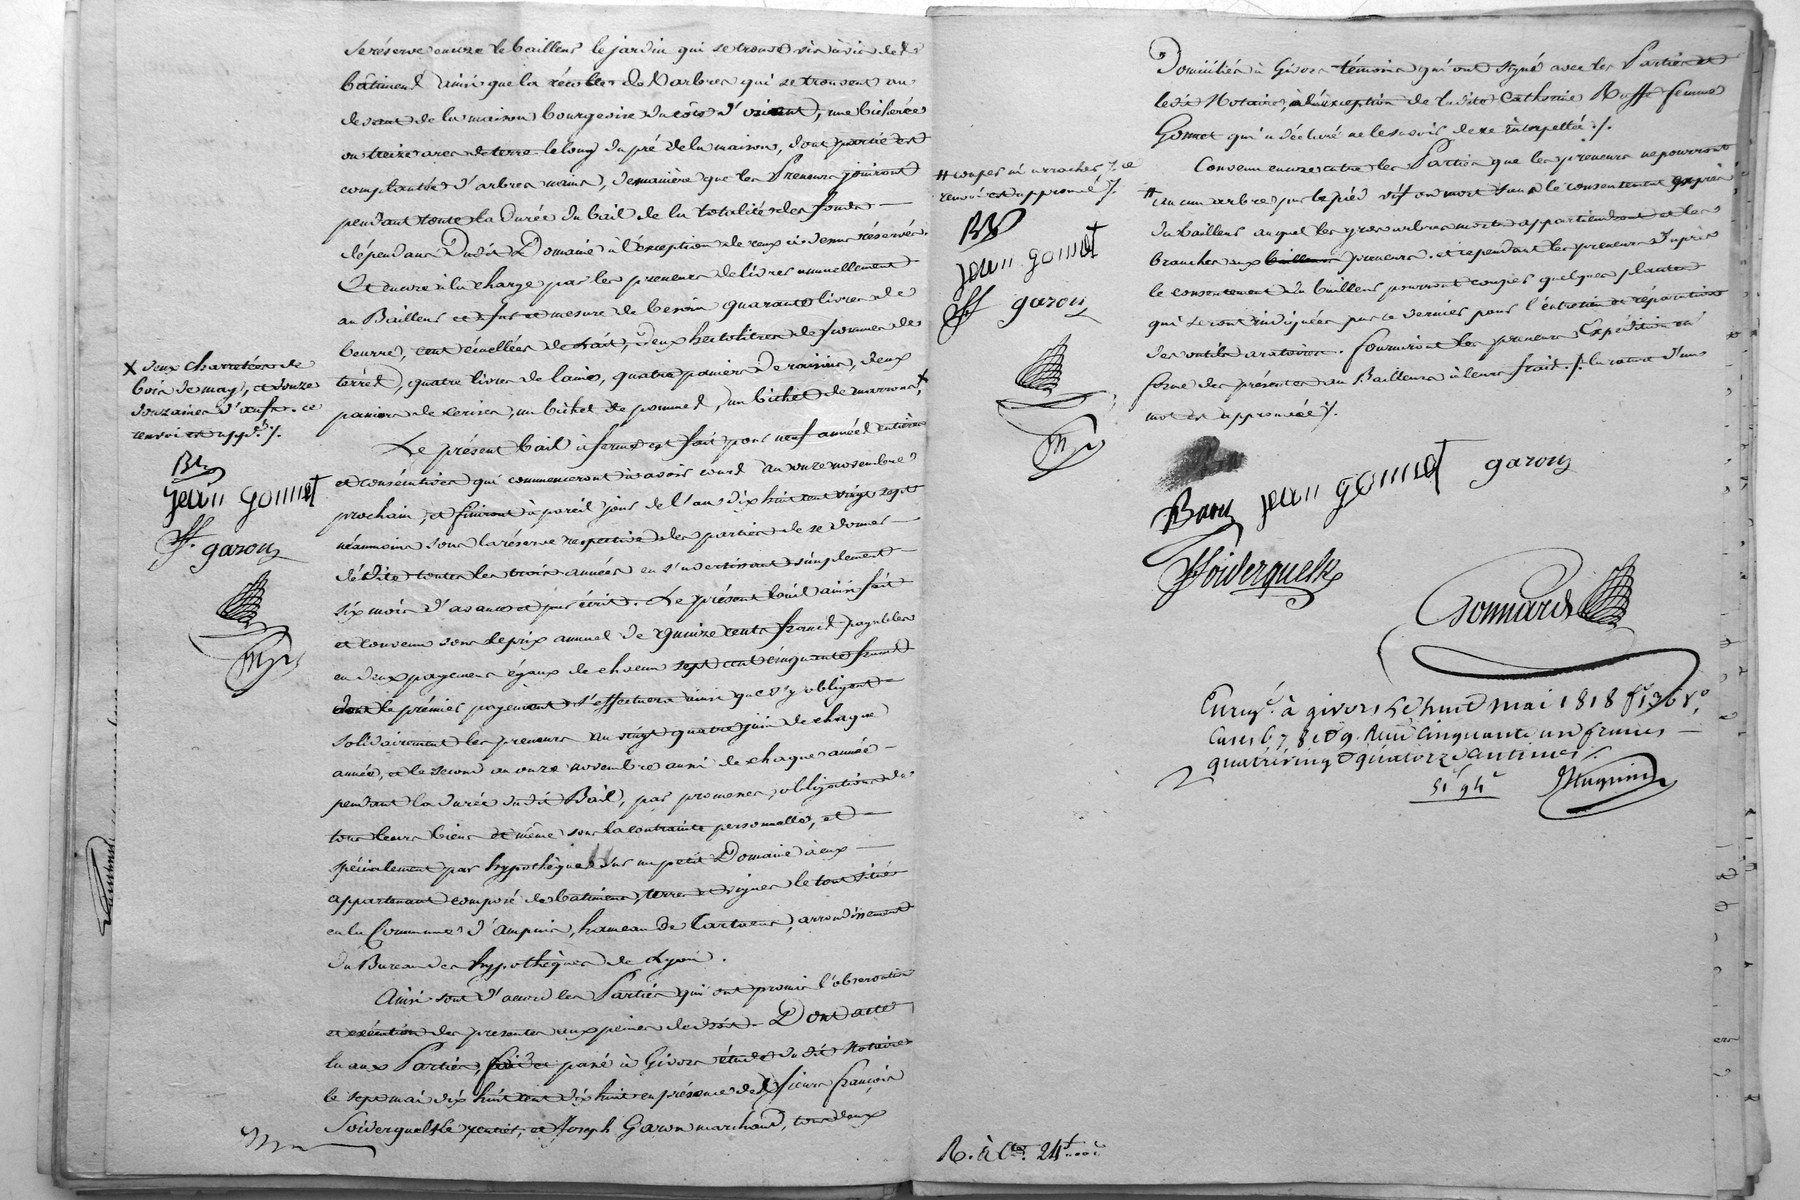 se réserve encore le bailleur le jardin qui se trouve vis à vis de
bâtiment ainsi que la récolte des arbres qui se trouvent au
devant de la maison bourgeoise du côté d'orient, une bicherée
ou treize ares de terre le long du pré de la maison, dont partie est
complantée d'arbres nains, de manière que les Preneurs jouiront
pendant toute la durée du bail de la totalité des fonds
dépendans Dudit Domaine à l'exception de ceux ci-dessus réservés.
Et encore à la charge par les preneurs de livrer annuellement
au Bailleur et à fur et mesure de besoin quarante livres de
beurre, cent écuellées de lait, deux hectolitres de pommes de
terre, quatre livres de laine, quatre paniers De raisins, deux
paniers de cerises, un bichet de pommes, un bichet de marrons, X
X deux charretées de
bois de may, et douze
douzaines d'œufs. ce
renvoi est app.é ./.
Jean Gonnet
garon
Le présent bail à ferme est fait pour neuf années entières
et consécutives qui commenceront à avoir cours au onze novembre
prochain, et finiront à pareil jour de l'an dix huit cent vingt sept
néanmoins sous la réserve respective des parties de se donner
dédite toutes les trois années en s'avertissant simplement
six mois d'avance et par écrit. Le présent bail ainsi fait
et convenu sous le prix annuel de quinze cents francs payables
en deux payemens égaux de chacun sept cent cinquante francs
dont le prémier payement s'effectuera ainsi que s'y obligent
solidairement les preneurs au vingt quatre juin de chaque
année, et le second au onze novembre aussi de chaque année
pendant la durée dudit Bail, par promesse, obligation de
tous leurs biens et même sous la contrainte personnelle, et
spécialement par hypothèque sur un petit Domaine à eux
appartenant composé de batimens, terres et vignes le tout situé
en la Commune d'ampuis, hameau de Tartaras, arrondissement
du Bureau des hypothèques de Lyon.
Ainsi sont d'accord les Parties qui ont promis l'observation
et exécution des presentes aux peines de droit. Dont acte
lu aux Parties, fait et passé à Givors étude dudit Notaire
le sept mai dix huit cent dix huit en présence de sieurs françois
Soiderquelk rentier, et Joseph Garon marchand, tous deux
Domiciliés à Givors témoins qui ont signé avec les Parties et
ledit Notaire, à l'exception de ladite Catherine Ruffe femme
Gonnet qui a déclaré ne le savoir de ce interpellée ./.
Convenu encore entre les Parties que les preneurs ne pourront
# aucun arbre par le pied vif ou mort sans le consentement exprès
du bailleur auquel les gros arbres morts appartiendront et les
branches aux preneurs. et cependant les preneurs d'après
le consentement du bailleur pourront couper quelques plantes
qui seront indiquées par ce dernier pour l'entretien et réparations
des outils aratoires. fourniront les preneurs Expédition en
forme des présentes au Bailleur à leurs frais ./. la rature d'un
mot est approuvée ./.
# couper ni arracher ./. ce
renvoi est approuvé ./.
Jean Gonnet
garon
Jean Gonnet garon
Soiderquelk
Gonnard
Enreg.é à givors le huit mai 1818 f° 136 v°
Cases 6 7 8 et 9. Reçu Cinquante un francs
quatrevingt quatorze Centimes ./.
51f 94c
R. à 24f